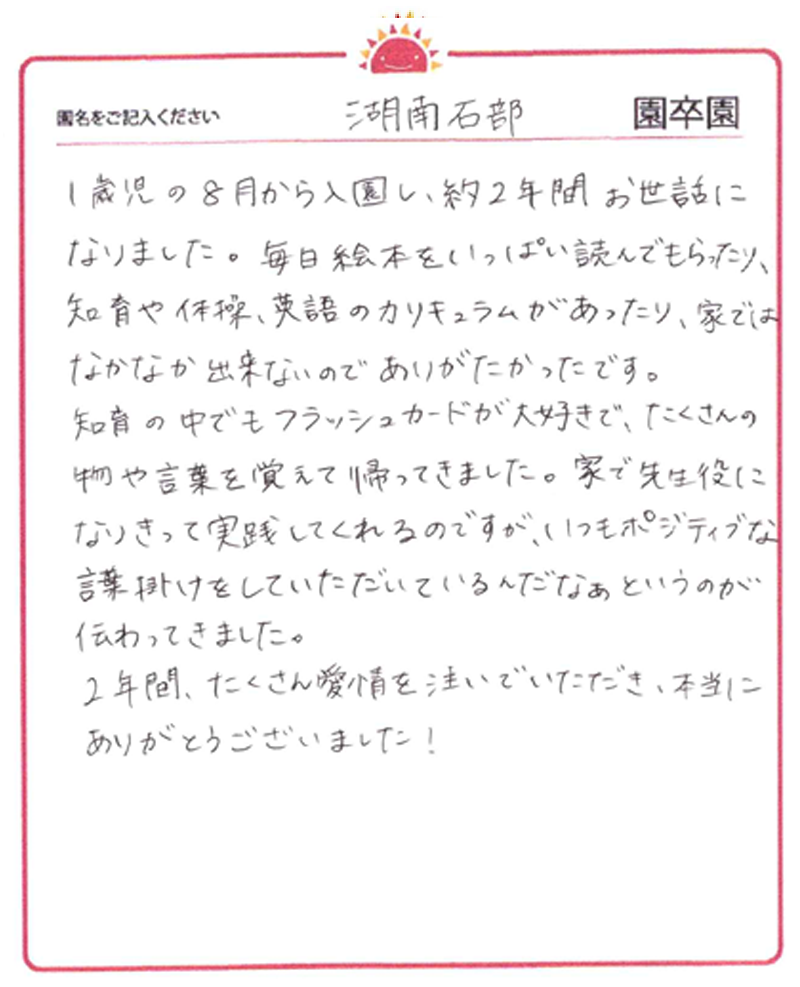 園名をご記入ください 湖南石部 園卒園
1歳児の8月から入園し、約2年間お世話に
なりました。毎日絵本をいっぱい読んでもらったり、
知育や体操、英語のカリキュラムがあったり、家では
なかなか出来ないのでありがたかったです。
知育の中でもフラッシュカードが大好きで、たくさんの
物や言葉を覚えて帰ってきました。家で先生役に
なりきって実践してくれるのですが、いつもポジティブな
言葉掛けをしていただいているんだなぁというのが
伝わってきました。
2年間、たくさん愛情を注いでいただき、本当に
ありがとうございました!